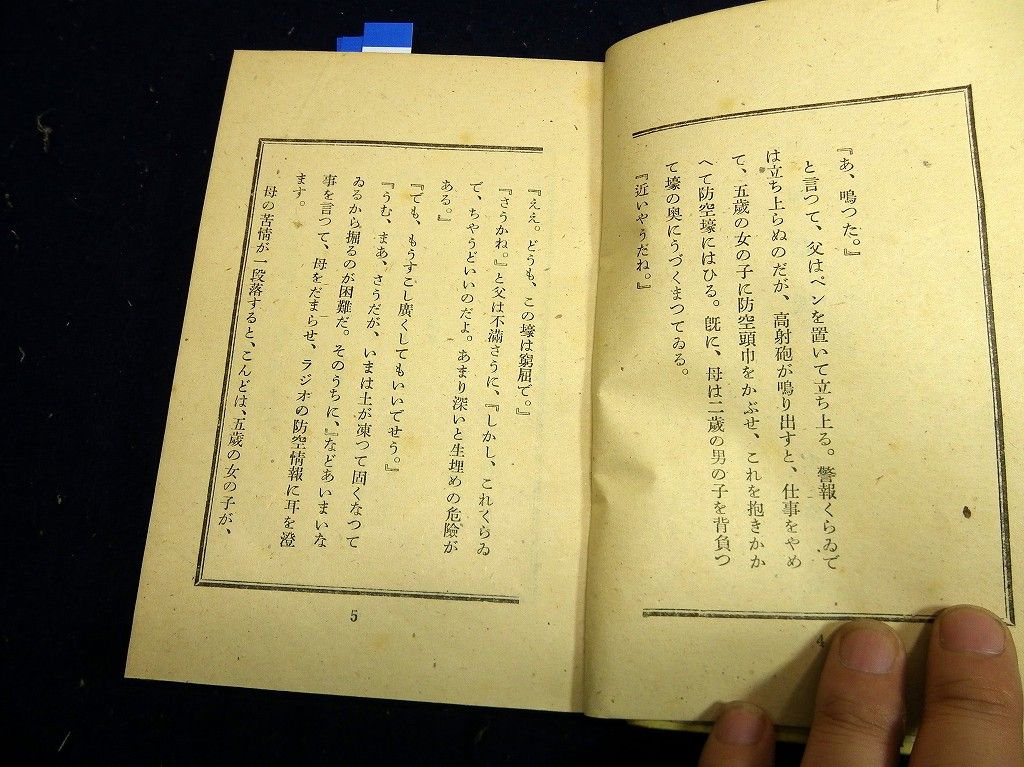 『あ、鳴つた。』
と言つて、父はペンを置いて立ち上る。警報くらゐで
は立ち上らぬのだが、高射砲が鳴り出すと、仕事をやめ
て、五歳の女の子に防空頭巾をかぶせ、これを抱きかか
へて防空壕にはひる。既に、母は二歳の男の子を背負つ
て壕の奥にうづくまつてゐる。
『近いやうだね。』
4
『ええ。どうも、この壕は窮屈で。』
『さうかね。』と父は不滿さうに、『しかし、これくらゐ
で、ちやうどいいのだよ。あまり深いと生埋めの危險が
ある。』
『でも、もうすこし廣くしてもいいでせう。』
『うむ、まあ、さうだが、いまは土が凍つて固くなつて
ゐるから掘るのが困難だ。そのうちに、』などあいまいな
事を言つて、母をだまらせ、ラジオの防空情報に耳を澄
ます。
母の苦情が一段落すると、こんどは、五歳の女の子が、
5